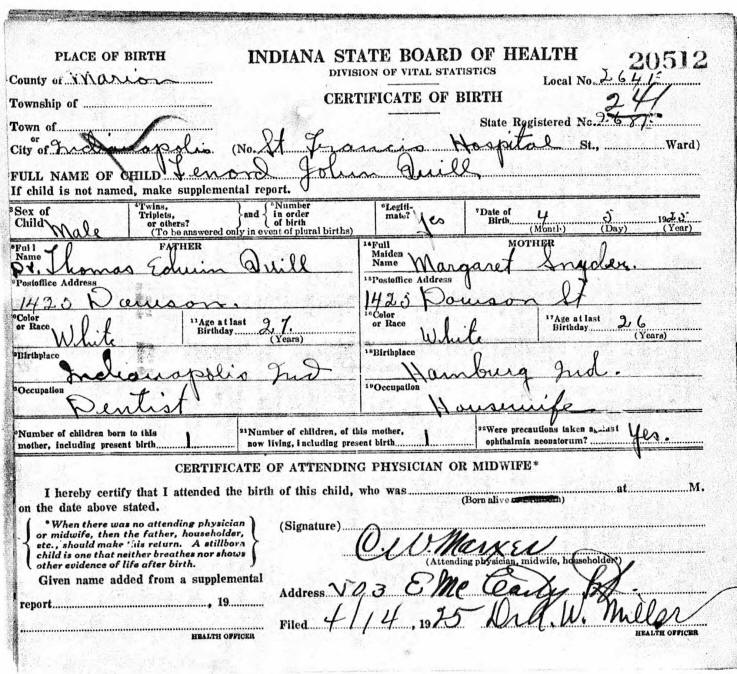 PLACE OF BIRTH
INDIANA STATE BOARD OF HEALTH
20512
DIVISION OF VITAL STATISTICS
County of Marion
Local No. 2641
Township of
CERTIFICATE OF BIRTH
241
Town of
State Registered No.
or
City of Indianapolis (No. St Francis Hospital St., Ward)
FULL NAME OF CHILD Lenord John Quill
If child is not named, make supplemental report.
3Sex of Child Male
4Twins, Triplets, or others? and 5Number in order of birth
(To be answered only in event of plural births)
6Legitimate? Yes
7Date of Birth 4 5 1925
(Month) (Day) (Year)
FATHER
8Full Name Dr. Thomas Edwin Quill
MOTHER
14Full Maiden Name Margaret Snyder.
9Postoffice Address
1425 Dawson.
15Postoffice Address
1425 Dawson St
10Color or Race White
11Age at last Birthday 27.
(Years)
16Color or Race White
17Age at last Birthday 26
(Years)
Birthplace
Indianapolis Ind
18Birthplace
Hamburg Ind.
Occupation
Dentist
19Occupation
Housewife
Number of children born to this mother, including present birth 1
21Number of children, of this mother, now living, including present birth 1
22Were precautions taken against ophthalmia neonatorum? Yes.
CERTIFICATE OF ATTENDING PHYSICIAN OR MIDWIFE*
I hereby certify that I attended the birth of this child, who was at M.
(Born alive
on the date above stated.
*When there was no attending physician
or midwife, then the father, householder,
etc., should make this return. A stillborn
child is one that neither breathes nor shows
other evidence of life after birth.
(Signature)
(Attending physician, midwife, householder*)
Given name added from a supplemental
report , 19
Address 503 E Mc Carty St.
Filed 4/14, 1925 Dr. W. Miller
HEALTH OFFICER
HEALTH OFFICER